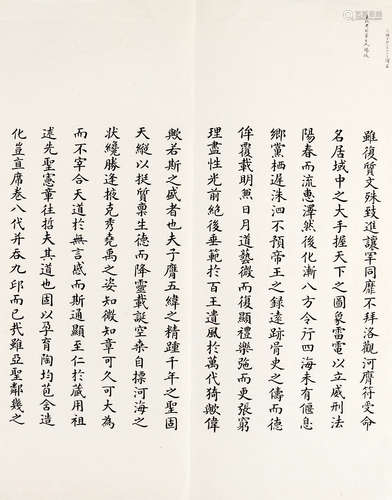 雖復質文殊致進讓罕同靡不拜洛觀河膺符受命
名居域中之大手握天下之圖象雷電以立威刑法
陽春而流惠澤然後化漸八方令行四海未有偃息
鄉黨栖遲洙泗不預帝王之錄遠跡胥史之儔而德
侔覆載明兼日月道藝微而復顯禮樂弛而更張窮
理盡性光前絕後垂範於百王遺風於萬代猗歟偉
歟若斯之盛者也夫子膺五緯之精踵千年之聖固
天縱以挺質稟生德而降靈載誕空桑自標河海之
狀纔勝逢掖克秀堯禹之姿知微知章可久可大為
而不宰合天道於無言感而斯通顯至仁於藏用祖
述先聖憲章往哲夫其道也固以孕育陶均苞含造
化豈直席卷八代并吞九邱而已哉雖亞聖鄰幾之